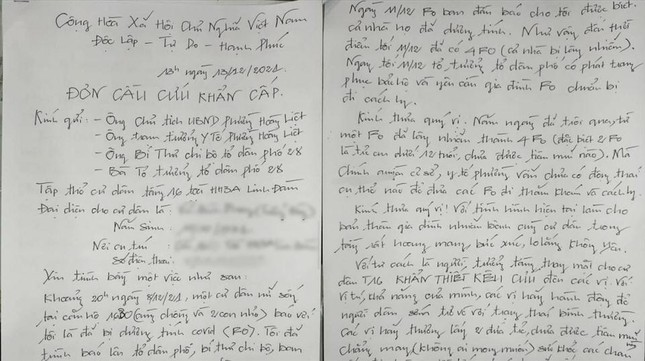 Cộng Hòa Xã Hội Chủ Nghĩa Việt Nam
Độc Lập - Tự Do - Hạnh Phúc
13h ngày 13/12/2021.
ĐƠN CẦU CỨU KHẨN CẤP.
Kính gửi: - Ông Chủ tịch UBND phường Hoàng Liệt
- Ông trạm trưởng Y Tế phường Hoàng Liệt
- Ông Bí Thư chi bộ tổ dân phố 28
- Bà Tổ trưởng tổ dân phố 28
Tập thể cư dân tầng 16 toà HH3A Linh Đàm
Đại diện cho cư dân là:
Năm Sinh:
Nơi cư trú:
Số điện thoại:
Xin trình bày một việc như sau:
Khoảng 20h ngày 8/12/21, một cư dân nữ sống
tại căn hộ (cùng chồng và 2 con nhỏ) báo với
tôi là đã bị dương tính covid (FO). Tôi đã
trình báo lên tổ dân phố, bí thư chi bộ, ban
Ngày 11/12 FO ban đầu báo cho tôi được biết
cả nhà họ đã dương tính. Như vậy đến thời
điểm tối 11/12 đã có 4 FO (cả nhà bị lây nhiễm).
Ngay tối 11/12 tổ trưởng tổ dân phố có phát trang
phục bảo hộ và yêu cầu gia đình FO chuẩn bị
đi cách ly.
Kính thưa quý vị. Năm ngày đã trôi qua, từ
một FO đã lây nhiễm thành 4 FO (đặc biệt 2 FO
là trẻ em dưới 12 tuổi, chưa được tiêm mũi nào). Mà
Chính quyền cơ sở, y tế phường vẫn chưa có động thái
cụ thể nào để đưa các FO đi thăm khám và cách ly.
Kính thưa quý vị! Với tình hình hiện tại làm cho
bản thân gia đình nhiễm bệnh cùng cư dân trong
tầng rất hoang mang bức xúc, lo lắng không yên.
Với tư cách là người trưởng tầng thay mặt cho cư
dân T16 KHẨN THIẾT KÊU CỨU đến các vị. Với
vị trí, khả năng của mình, các vị hãy hành động để
người dân sớm trở về với trạng thái bình thường.
Các vị hãy thương lấy 2 đứa trẻ, chưa được tiêm mũi nào
Chẳng may (không ai mong muốn) sức khoẻ các cháu